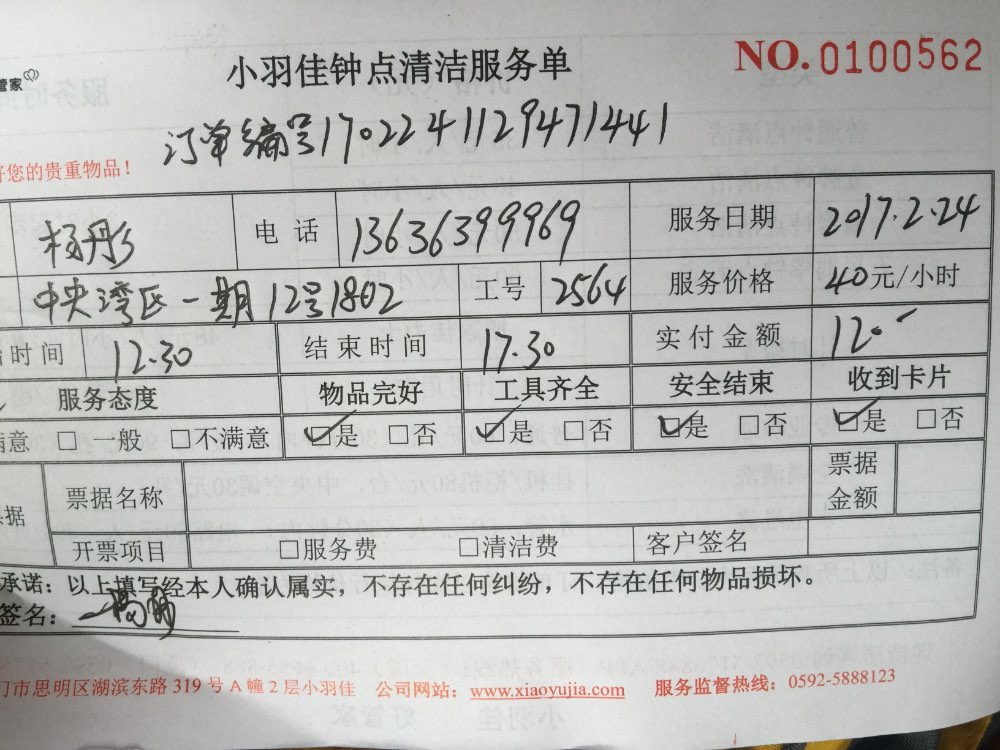 管家
小羽佳钟点清洁服务单
NO.0100562
订单编号1702241129471441
好您的贵重物品！
杨彤 电话 13636399969 服务日期 2017.2.24
中央湾区一期12号1802 工号 2564 服务价格 40元/小时
时间 12.30 结束时间 17.30 实付金额 120
服务态度 物品完好 工具齐全 安全结束 收到卡片
满意 □ 一般 □不满意 ☑是 □否 ☑是 □否 ☑是 □否 ☑是 □否
票据名称 票据金额
据
开票项目 □服务费 □清洁费 客户签名
承诺：以上填写经本人确认属实，不存在任何纠纷，不存在任何物品损坏。
签名：
门市思明区湖滨东路 319 号 A 幢 2 层小羽佳 公司网站：www.xiaoyujia.com 服务监督热线：0592-5888123